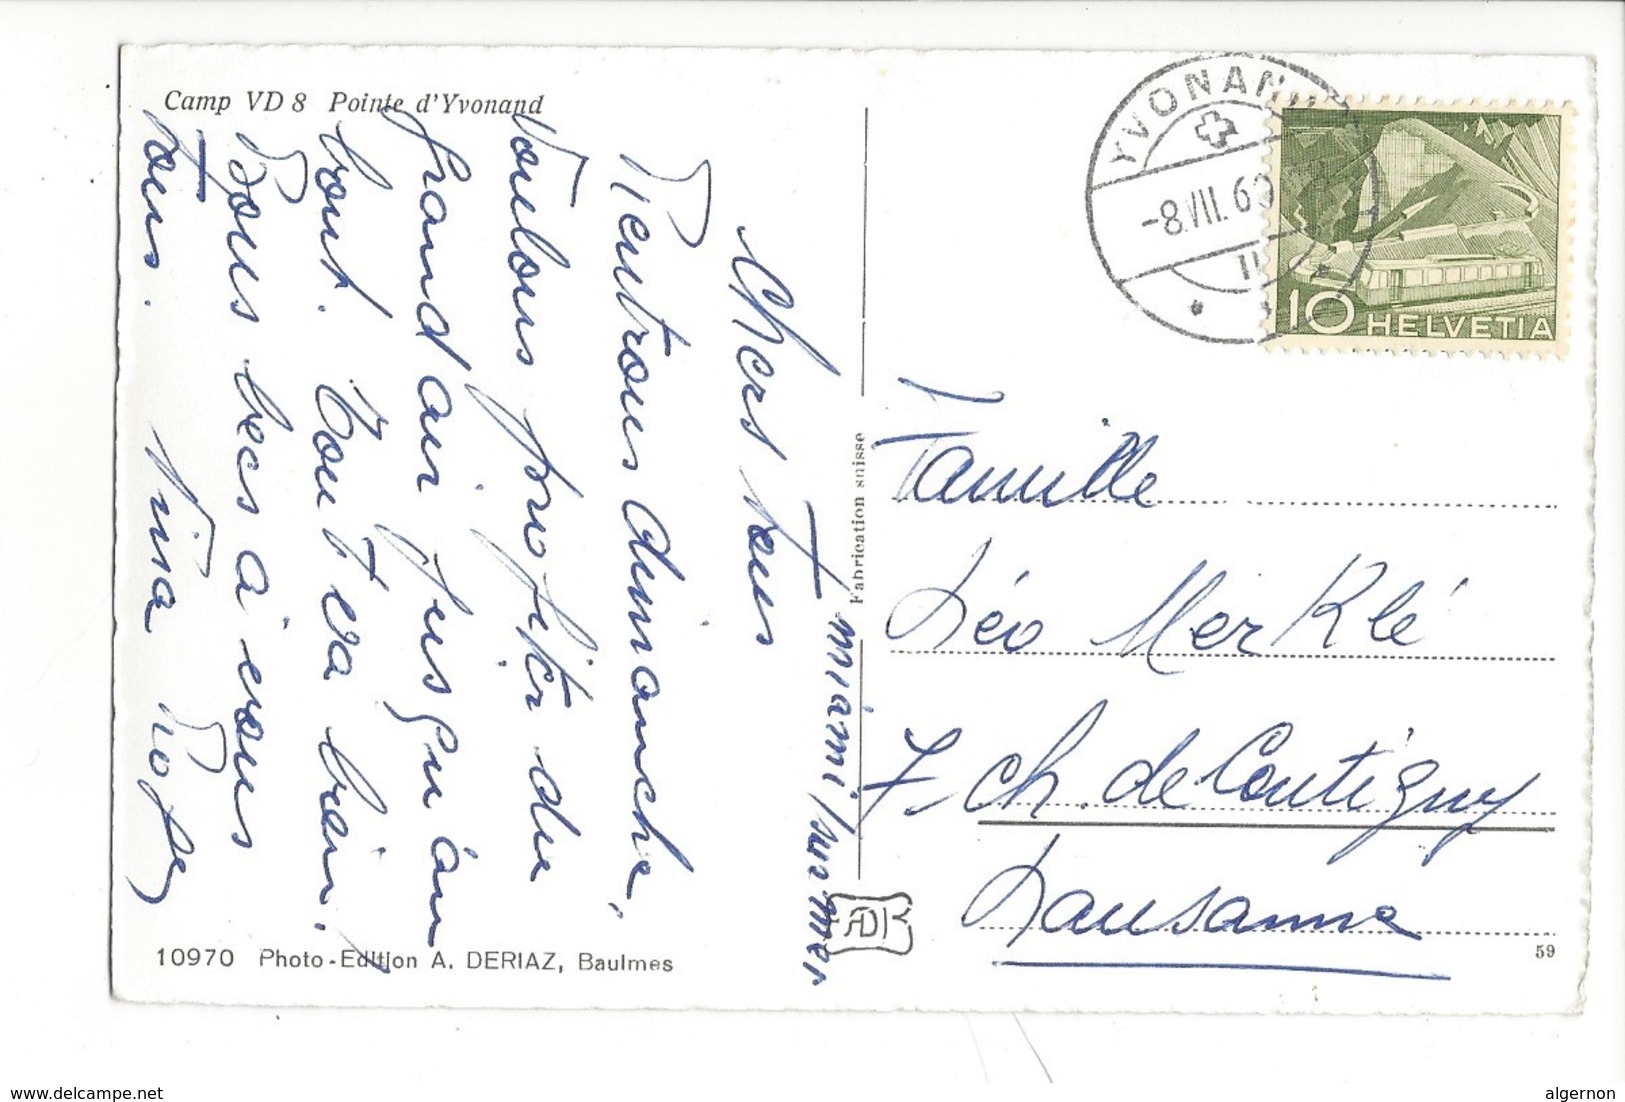 Camp VD 8 Pointe d'Yvonand
miami / sur mer.
Chers tous
Rentrons dimanche,
Voulons profiter du
grand air jusqu'au
bout. Tout va bien.
Bons becs à vous
tous. Nina
Fabrication suisse
10970 Photo-Edition A. DERIAZ, Baulmes
YVONAND
-8.VII.60
10 HELVETIA
Famille
Léo Merklé
7. ch. de Contigny
Lausanne
59
algernon